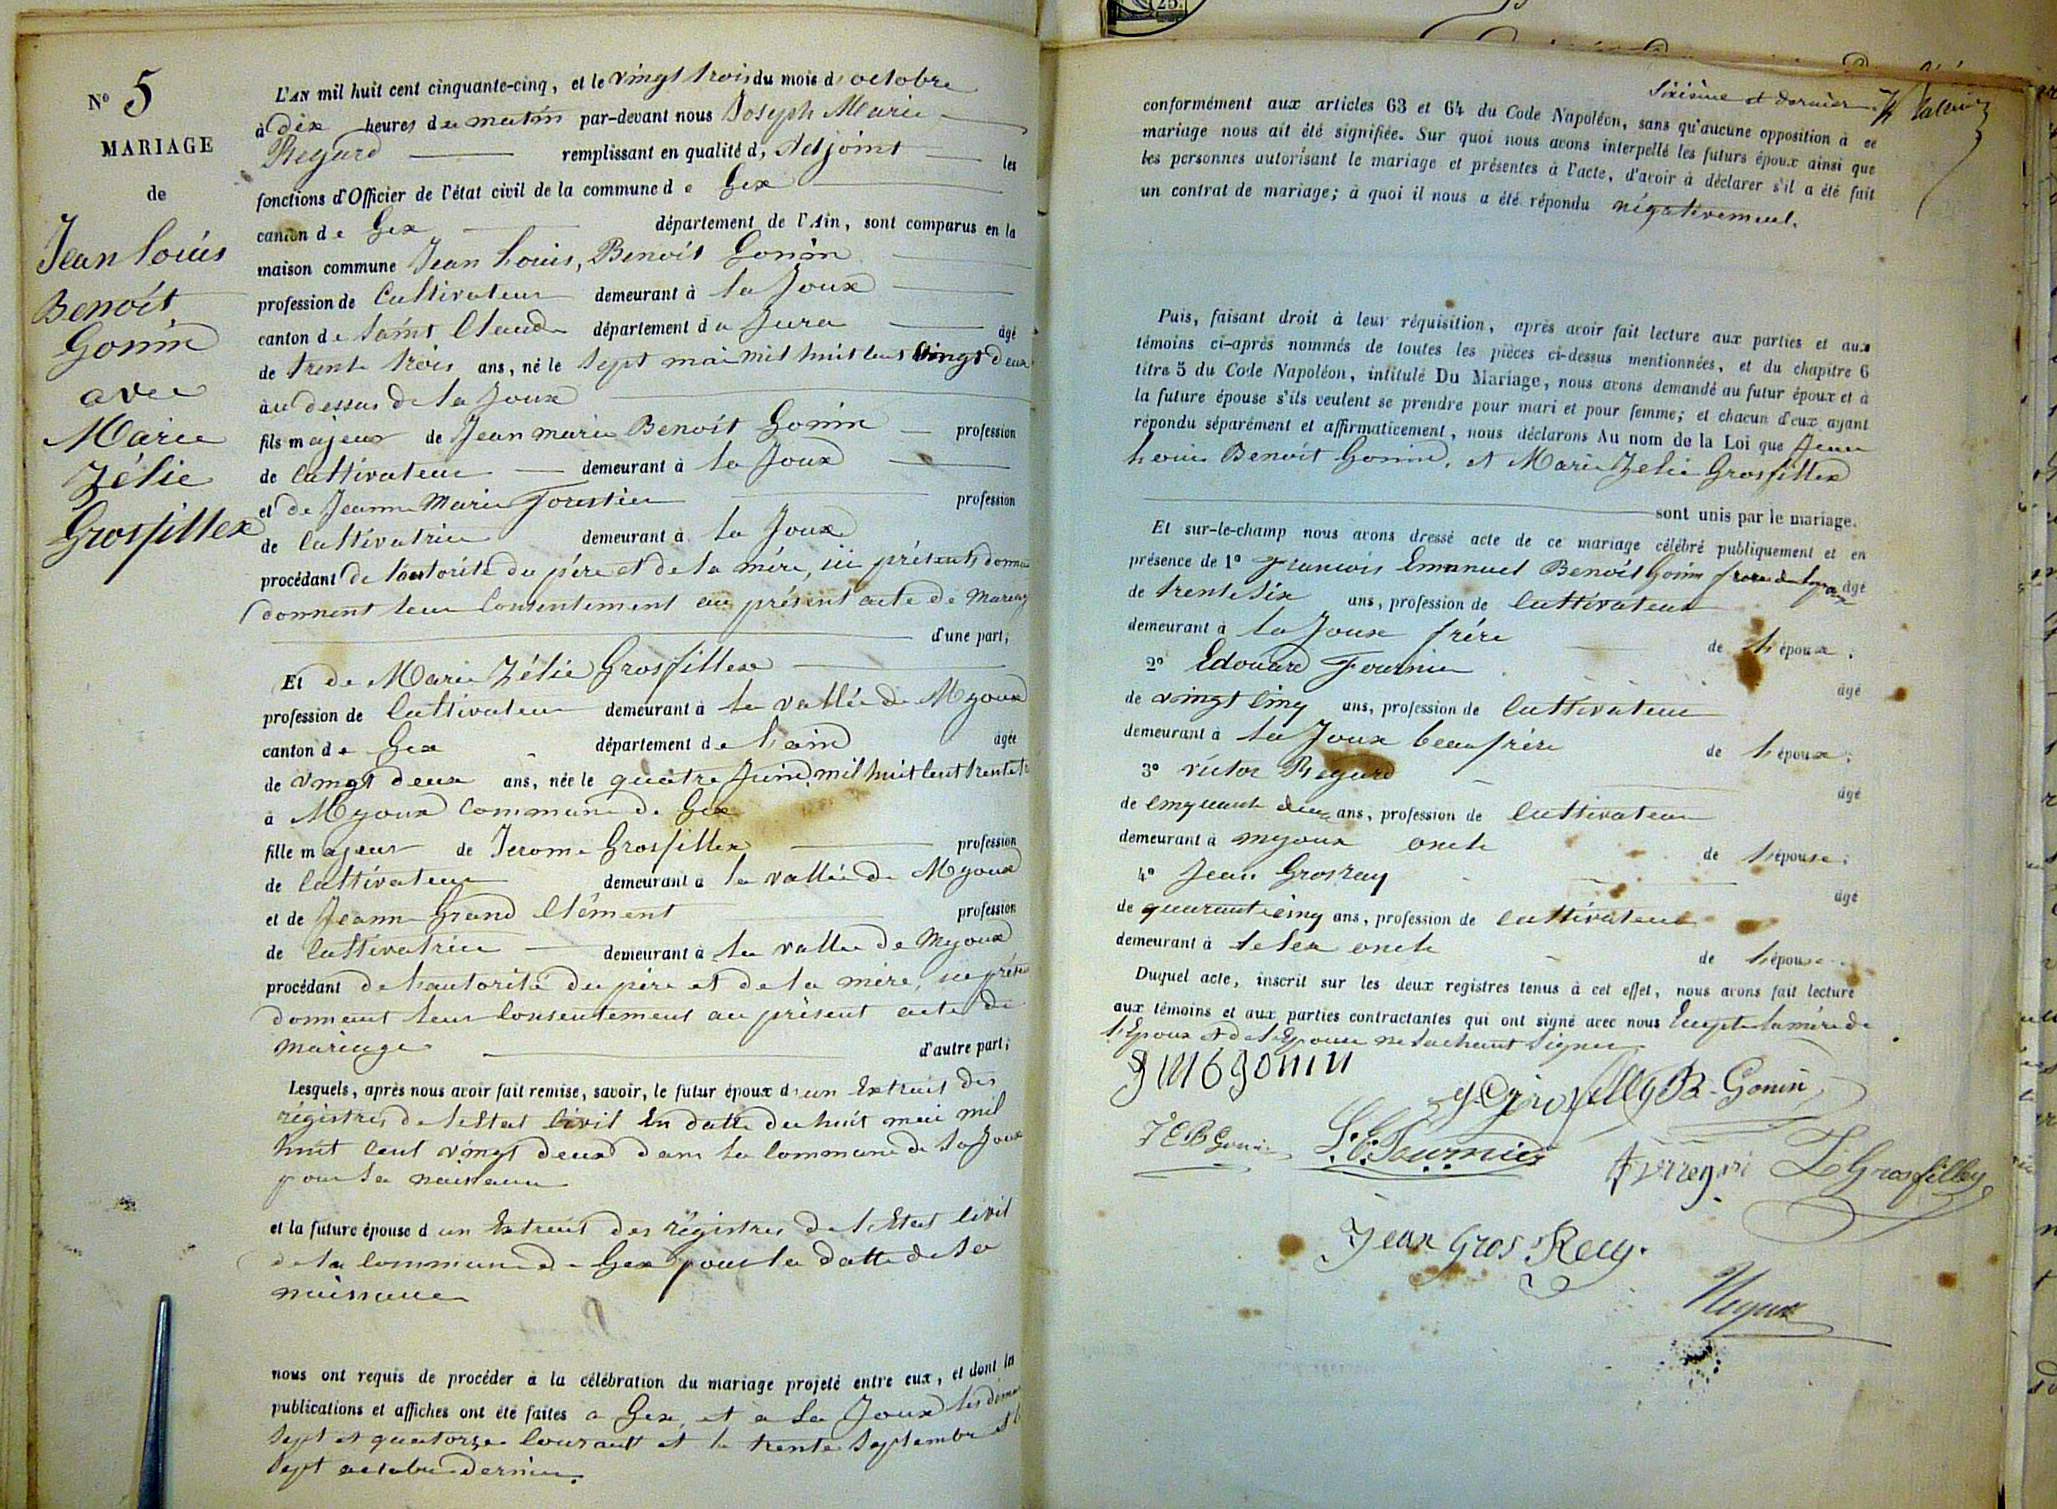 N° 5
MARIAGE
de
Jean Louis
Benoît
Gonin
avec
Marie
Zélie
Grosfillex
L'AN mil huit cent cinquante-cinq, et le vingt trois du mois d'octobre
à dix heures du matin par-devant nous Joseph Marie
Regard remplissant en qualité d'Adjoint les
fonctions d'Officier de l'état civil de la commune de Gex
canton de Gex département de l'Ain, sont comparus en la
maison commune Jean Louis, Benoît Gonin
profession de Cultivateur demeurant à La Joux
canton de Saint Claude département du Jura âgé
de trente trois ans, né le sept mai mil huit cent vingt deux
au dessus de La Joux
fils majeur de Jean marie Benoît Gonin profession
de cultivateur demeurant à La Joux
et de Jeanne Marie Forestier profession
de cultivatrice demeurant à La Joux
procédant de l'autorité du père et de la mère, ici présents donnant
donnent leur consentement au présent acte de mariage
d'une part;
Et de Marie Zélie Grosfillex
profession de Cultivateur demeurant à la vallée de Mijoux
canton de Gex département de l'ain âgée
de vingt deux ans, née le quatre Juin mil huit cent trente
à Mijoux Commune de Gex
fille majeur de Jerome Grosfillex profession
de cultivateur demeurant à la vallée de Mijoux
et de Jeanne Grand Clément profession
de cultivatrice demeurant à la vallée de Mijoux
procédant de l'autorité du père et de la mère, ici présents
donnent leur consentement au présent acte de
mariage d'autre part;
Lesquels, après nous avoir fait remise, savoir, le futur époux d'un Extrait des
régistres de l'Etat civil En datte du huit mai mil
huit cent vingt deux dans la commune de La Joux
pour sa naissance
et la future épouse d'un Extrait des régistres de l'Etat civil
de la commune de Gex pour la datte de sa
naissance
nous ont requis de procéder à la célébration du mariage projeté entre eux, et dont les
publications et affiches ont été faites à Gex, et à La Joux les
sept et quatorze courant et le trente septembre et
sept octobre dernier.
Sixième et dernier
conformément aux articles 63 et 64 du Code Napoléon, sans qu'aucune opposition à ce
mariage nous ait été signifiée. Sur quoi nous avons interpellé les futurs époux ainsi que
les personnes autorisant le mariage et présentes à l'acte, d'avoir à déclarer s'il a été fait
un contrat de mariage; à quoi il nous a été répondu négativement.
Puis, faisant droit à leur réquisition, après avoir fait lecture aux parties et aux
témoins ci-après nommés de toutes les pièces ci-dessus mentionnées, et du chapitre 6
titre 5 du Code Napoléon, intitulé Du Mariage, nous avons demandé au futur époux et à
la future épouse s'ils veulent se prendre pour mari et pour femme; et chacun d'eux ayant
répondu séparément et affirmativement, nous déclarons Au nom de la Loi que Jean
Louis Benoît Gonin, et Marie Zelie Grosfillex
sont unis par le mariage.
Et sur-le-champ nous avons dressé acte de ce mariage célébré publiquement et en
présence de 1° François Emanuel Benoît Gonin frère de l'époux âgé
de trente six ans, profession de cultivateur
demeurant à La Joux frère de l'époux;
2° Edouard Fournier âgé
de vingt cinq ans, profession de cultivateur
demeurant à La Joux beaufrère de l'époux;
3° victor Regard âgé
de cinquante deux ans, profession de cultivateur
demeurant à mijoux oncle de l'épouse;
4° Jean Grosrey âgé
de quarante cinq ans, profession de cultivateur
demeurant à oncle de l'épouse
Duquel acte, inscrit sur les deux registres tenus à cet effet, nous avons fait lecture
aux témoins et aux parties contractantes qui ont signé avec nous Excepté la mère de
l'Epoux et de l'Epouse ne sachant signer
B-Gonin
F E B Gonin
Fournier
Z Grosfilley
Jean Gros Rey.